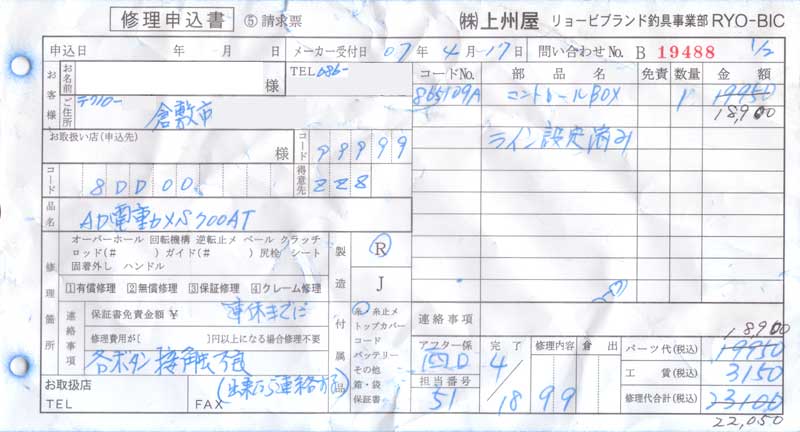 修理申込書 ⑤請求票 ㈱上州屋 リョービブランド釣具事業部 RYO-BIC
申込日 年 月 日 メーカー受付日 07年 4月17日 問い合わせNo. B 19488 1/2
お客様 お名前 様 TEL 086-
ご住所 倉敷市
お取扱い店(申込先) 様 コード 99999
コード 80000 得意先 228
品名 AD電動カメS700AT
コードNo. 部品名 免責 数量 金額
865109A コントロールBOX 1 19950
18,900
ライン設定済み
修理箇所 オーバーホール 回転機構 逆転止メ ベール クラッチ
ロッド(# ) ガイド(# ) 尻栓 シート
固着外し ハンドル
1有償修理 2無償修理 3保証修理 4クレーム修理
製造 R J
連絡事項 保証書免責金額 ¥ 連休までに
修理費用が( )円以上になる場合修理不要
各ボタン接触不良
(出来たら連絡する)
付属品 糸 糸止メ
トップカバー
コード
バッテリー
その他
箱・袋
保証書
お取扱店
TEL FAX
連絡事項
アフター係 完了 修理内容 倉出
担当番号 51 4/18 99
18,900
パーツ代(税込) 19950
工賃(税込) 3150
修理代合計(税込) 23100
22,050